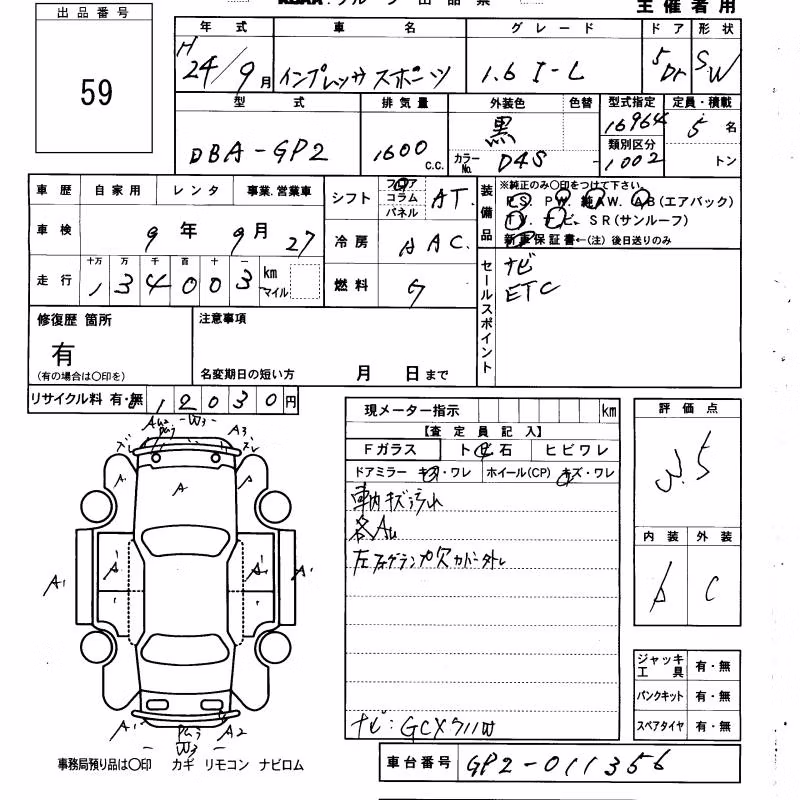 主 催 者 用
出 品 番 号
59
年 式
車 名
グ レ ー ド
ド ア
形 状
H 24/9 月
インプレッサ スポーツ
1.6 I-L
5 Dr
SW
型 式
排 気 量
外装色
色替
型式指定
定員・積載
DBA-GP2
1600 c.c.
黒
カラーNo. D4S
16964
類別区分
1002
5 名
トン
車 歴
自 家 用
レ ン タ
事業.営業車
車 検
9 年 9 月 27
走 行
十万 万 千 百 十 一
1 3 4 0 0 3
km
マイル
シフト
フロア
コラム
パネル
AT.
冷 房
AAC.
燃 料
装備品
※純正のみ〇印をつけて下さい。
P.S. P.W. 純AW. AB(エアバック)
TV. ナビ. SR(サンルーフ)
新車保証書←(注) 後日送りのみ
セールスポイント
ナビ
ETC
修復歴 箇所
有
(有の場合は〇印を)
注意事項
名変期日の短い方
月 日 まで
リサイクル料 有・無
12030 円
現メーター指示
km
【査 定 員 記 入】
Fガラス
ト ビ 石
ヒ ビ ワ レ
ドアミラー キズ・ワレ
ホイール(CP) キズ・ワレ
車内キズ汚れ
各AU
ナビ:GCX711W
評 価 点
3.5
内 装
外 装
C
A3
A
A
A
A1
A1
A1
A2
W3
ジャッキ
工 具
有・無
パンクキット
有・無
スペアタイヤ
有・無
事務局預り品は〇印 カギ リモコン ナビロム
車台番号
GP2-011356